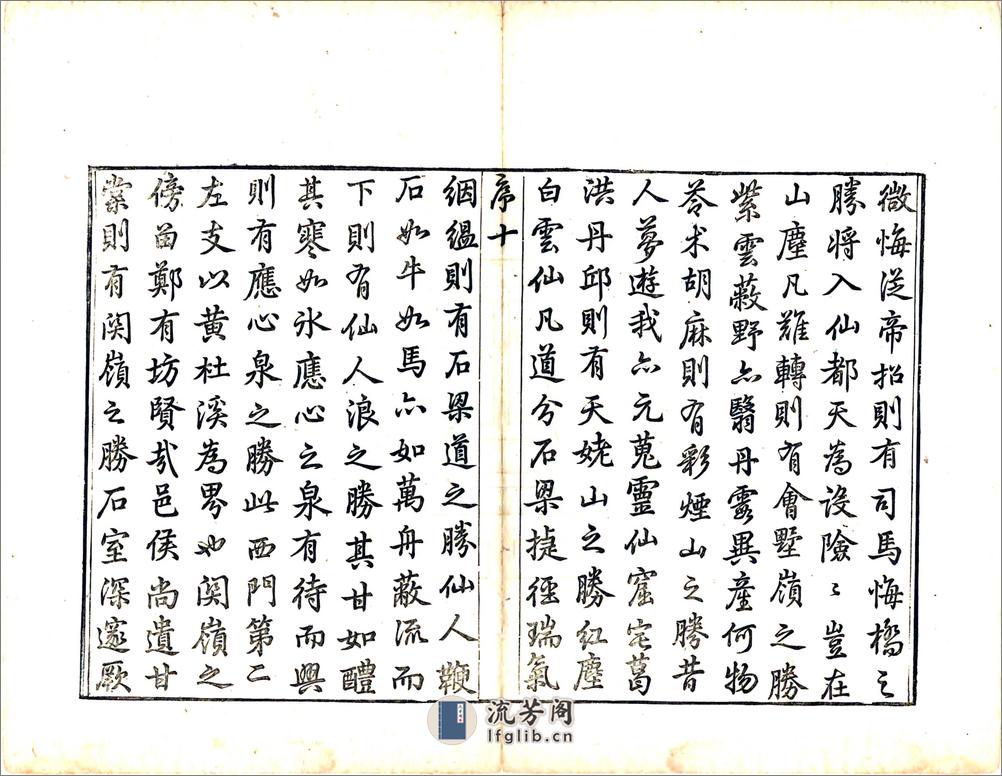 微悔從帝招則有司馬悔橋之
勝將入仙都天為設險〻豈在
山塵凡難轉則有會墅嶺之勝
紫雲蔽野亦翳丹霞異産何物
苓术胡麻則有彩煙山之勝昔
人夢遊我亦元蒐靈仙窟宅葛
洪丹邱則有天姥山之勝紅塵
白雲仙凡道分石梁捷徑瑞氣
序十
絪緼則有石梁道之勝仙人鞭
石如牛如馬亦如萬舟蔽流而
下則有仙人浪之勝其甘如醴
其寒如氷應心之泉有待而興
則有應心泉之勝此西門第二
左支以黄杜溪為界也関嶺之
傍啚鄭有坊賢㢤邑侯尚遺甘
棠則有関嶺之勝石室深邃厥
流芳阁
lfglib.cn